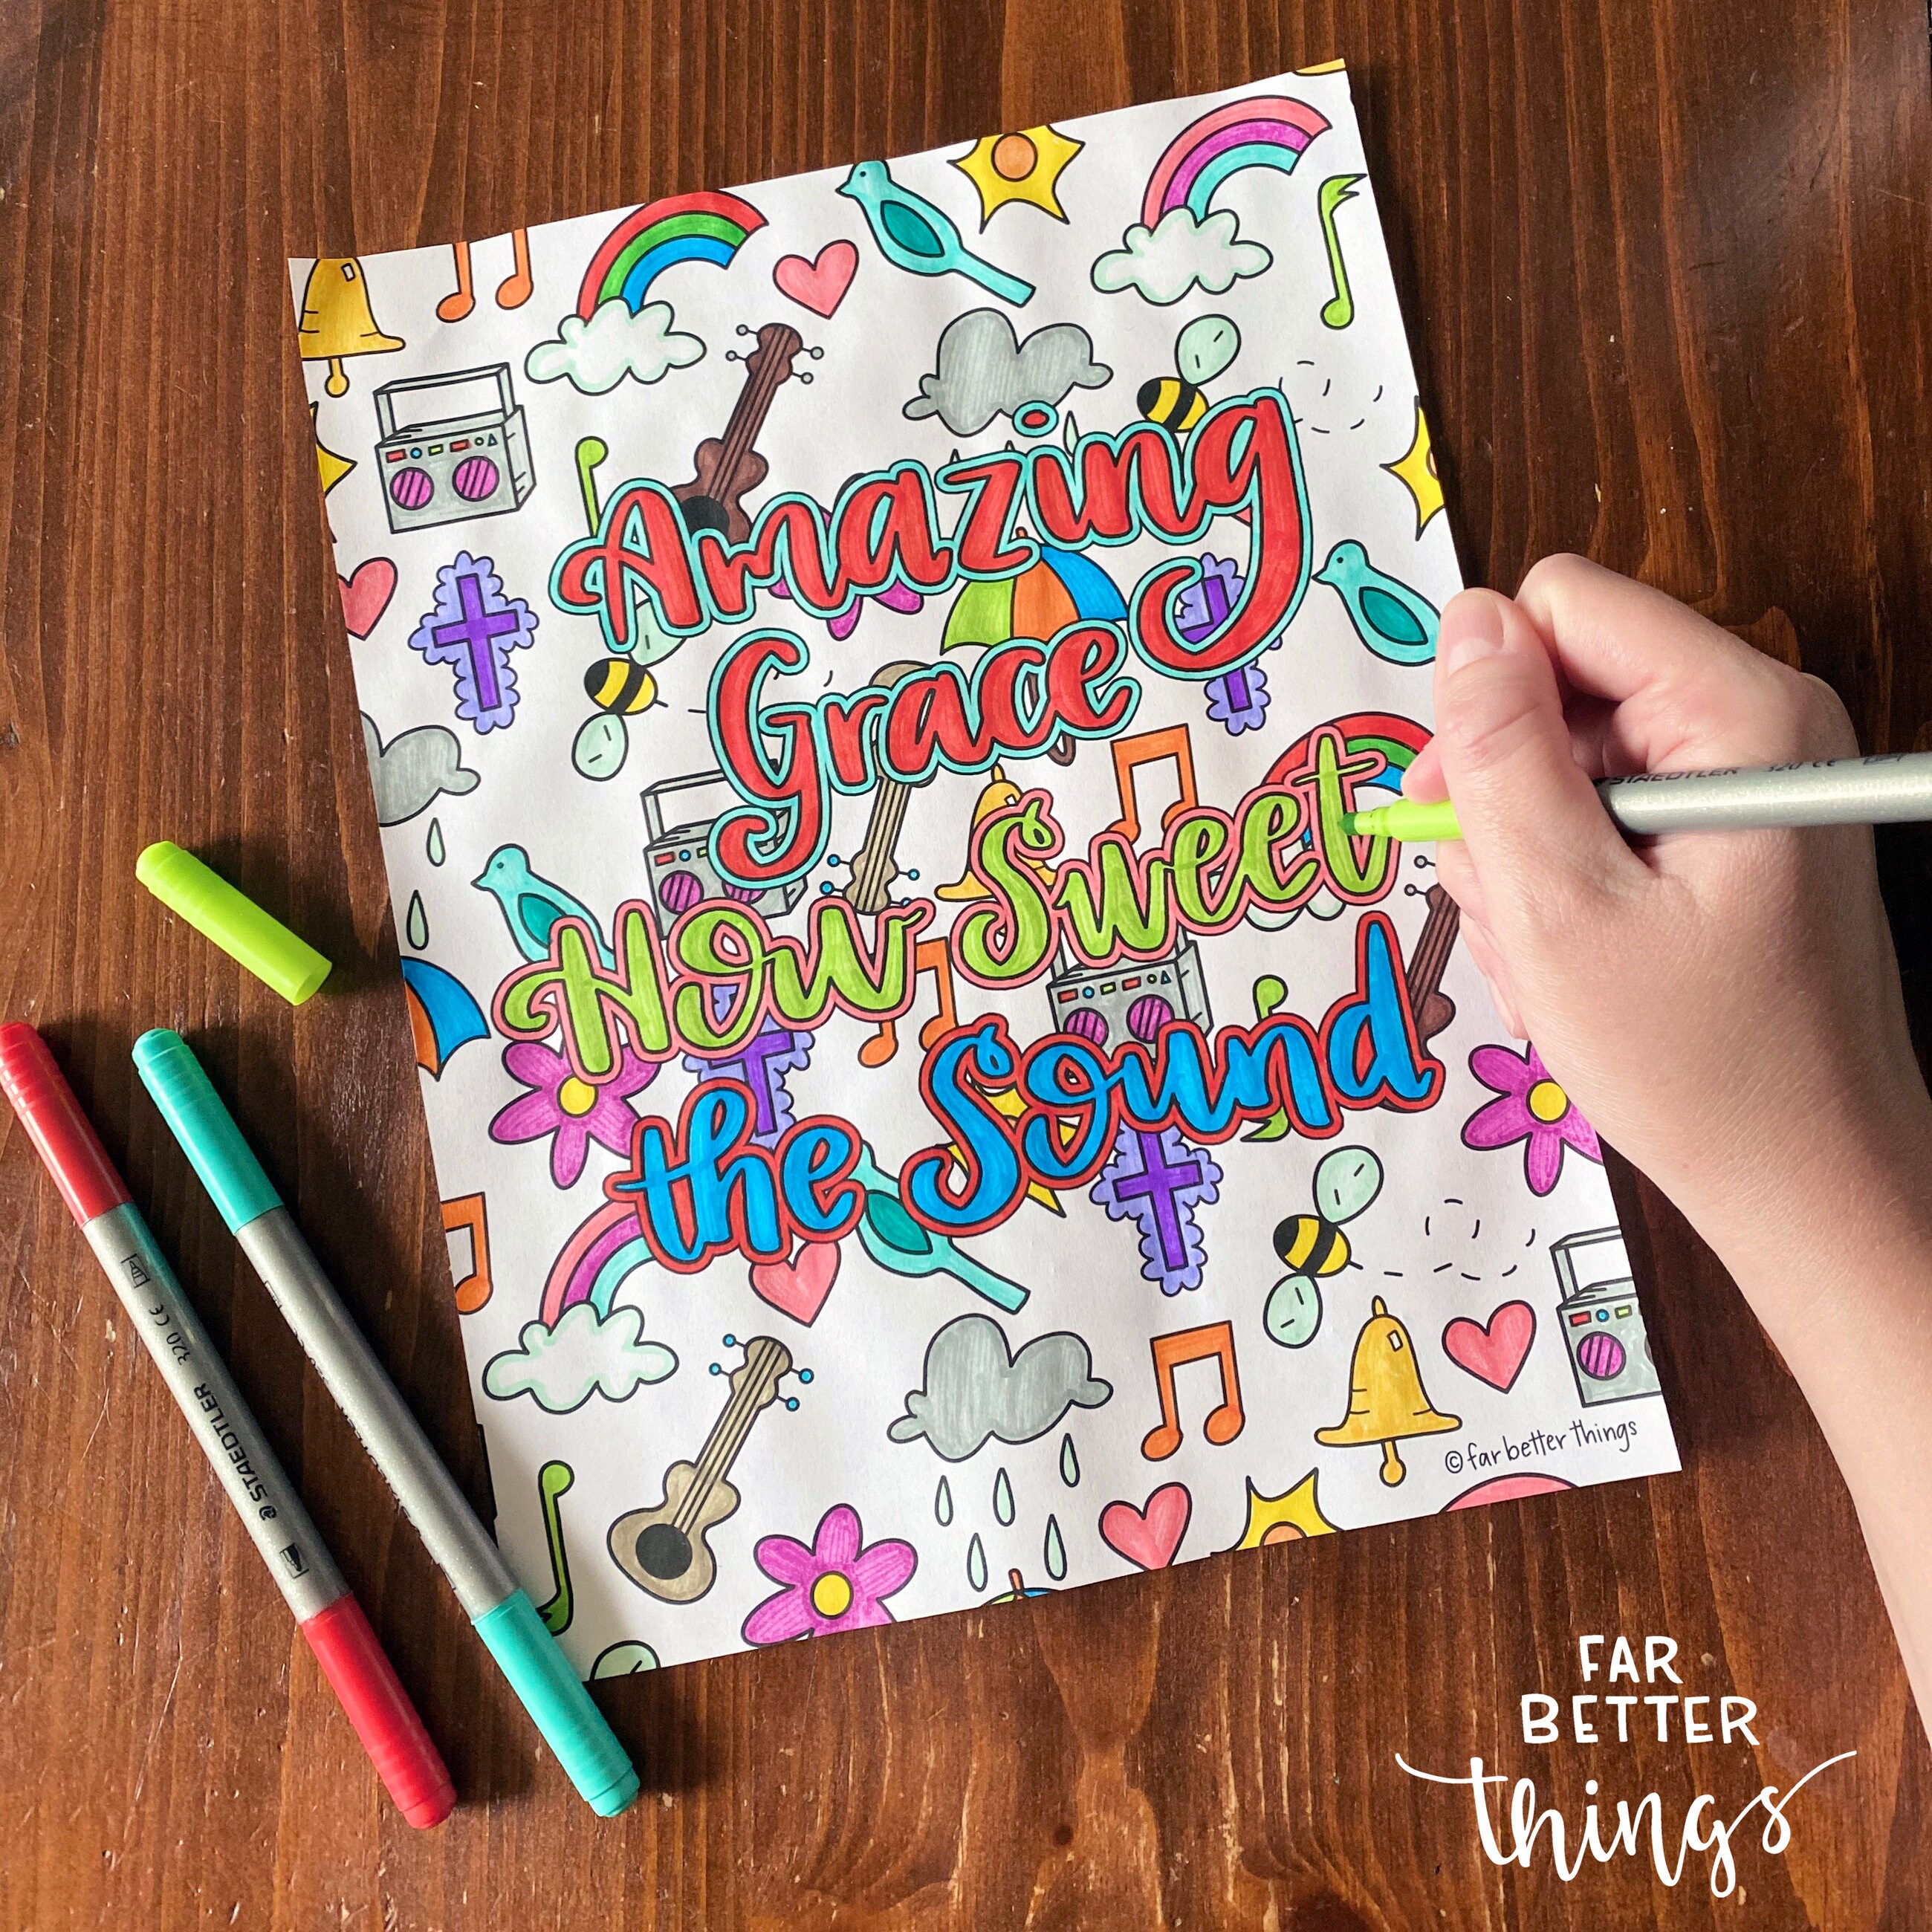 Amazing
Grace
How Sweet
the Sound
©far better things
STAEDTLER 320 CE
320 CE
STAEDTLER
FAR
BETTER
things